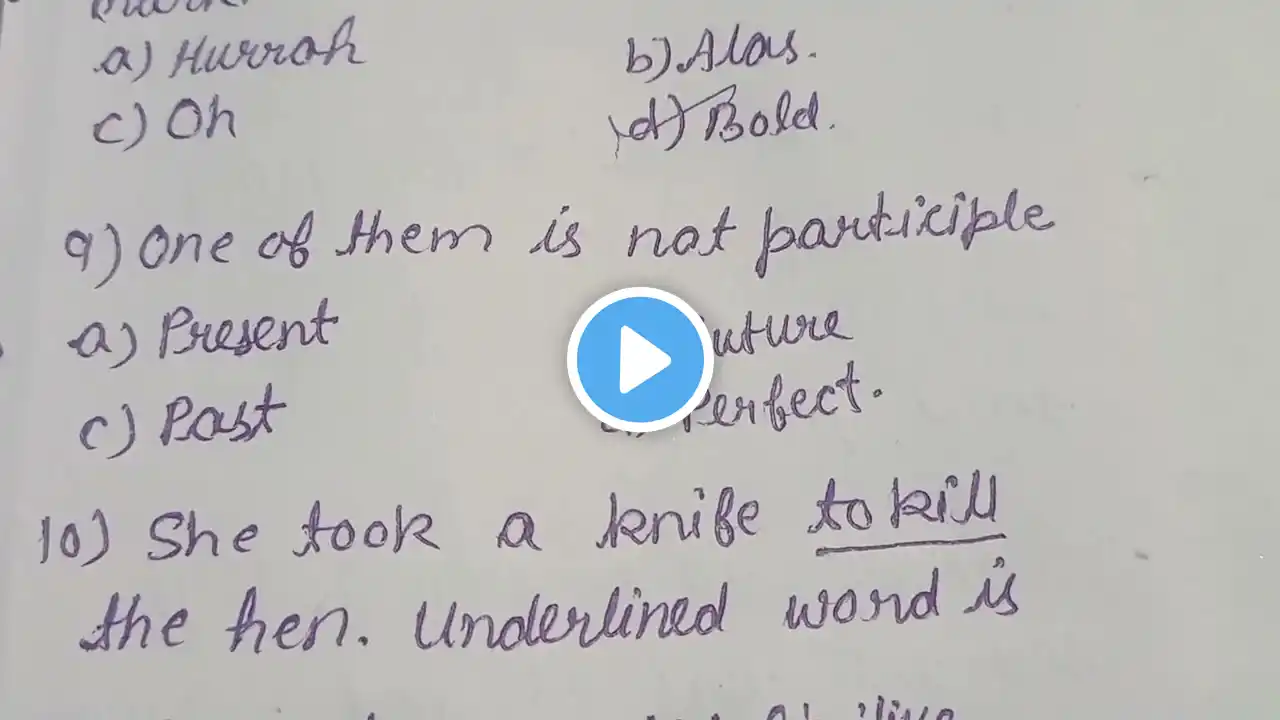 a) Hurrah b) Alas.
c) Oh d) Bold.
9) One of them is not participle
a) Present
c) Past Perfect.
10) She took a knife to kill
the hen. Underlined word is